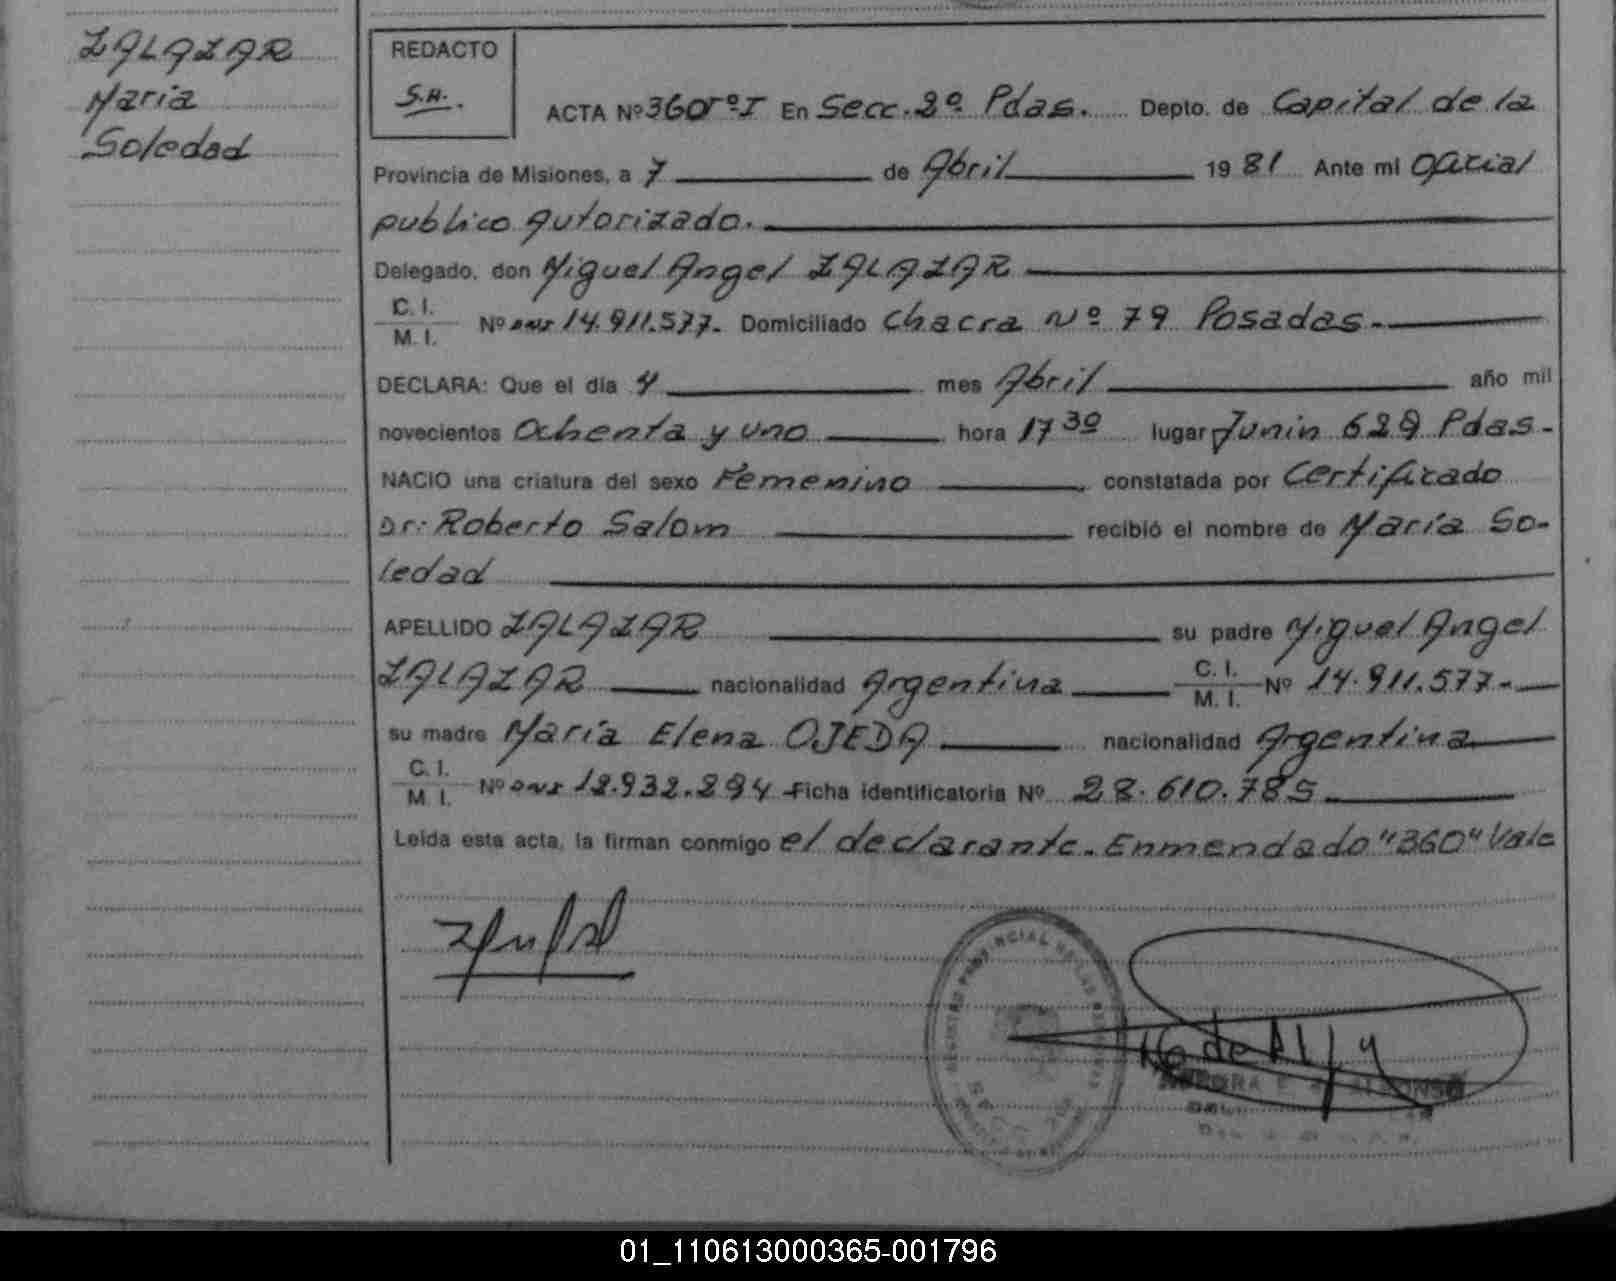 ZALAZAR
Maria
Soledad
REDACTO
S.A.
ACTA Nº 360 Tº I En Secc. 2º Pdas. Depto. de Capital de la
Provincia de Misiones, a 7 de Abril 1981 Ante mi Oficial
publico Autorizado.
Delegado, don Miguel Angel ZALAZAR
C. I.
M. I. Nº DNI 14.911.577. Domiciliado Chacra Nº 79 Posadas.
DECLARA: Que el día 4 mes Abril año mil
novecientos Ochenta y uno hora 17 30 lugar Junin 629 Pdas.
NACIO una criatura del sexo Femenino constatada por Certificado
Dr: Roberto Salom recibió el nombre de María So-
ledad
APELLIDO ZALAZAR su padre Miguel Angel
ZALAZAR nacionalidad Argentina C. I. M. I. Nº 14.911.577.
su madre María Elena OJEDA nacionalidad Argentina
C. I.
M. I. Nº DNI 12.932.294 Ficha identificatoria Nº 28.610.785
Leída esta acta, la firman conmigo el declarante. Enmendado "360" Vale
REGISTRO PROVINCIAL DE LAS PERSONAS
01_110613000365-001796